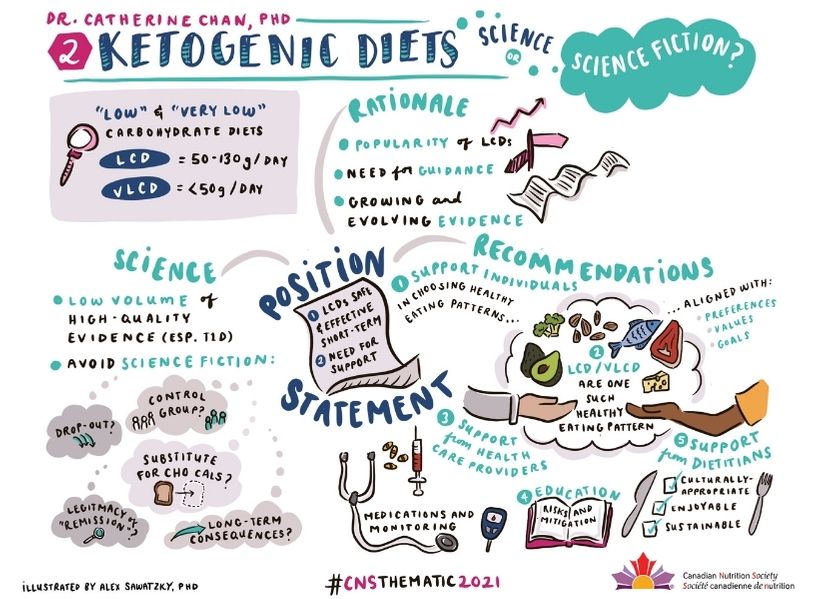 DR. CATHERINE CHAN, PHD
2 KETOGENIC DIETS
SCIENCE
OR
SCIENCE FICTION?
"LOW" & "VERY LOW"
CARBOHYDRATE DIETS
LCD = 50-130g/DAY
VLCD = <50g/DAY
RATIONALE
POPULARITY of LCDs
NEED for GUIDANCE
GROWING and
EVOLVING EVIDENCE
SCIENCE
LOW VOLUME of
HIGH-QUALITY
EVIDENCE (ESP. T1D)
AVOID SCIENCE FICTION:
DROP-OUT?
CONTROL
GROUP?
SUBSTITUTE
FOR CHO CALS?
LEGITIMACY of
"REMISSION"?
LONG-TERM
CONSEQUENCES?
POSITION
1 LCDs SAFE
& EFFECTIVE
SHORT-TERM
2 NEED FOR
SUPPORT
STATEMENT
RECOMMENDATIONS
1 SUPPORT INDIVIDUALS
IN CHOOSING HEALTHY
EATING PATTERNS...
...ALIGNED WITH:
PREFERENCES
VALUES
GOALS
2
LCD/VLCD
ARE ONE
SUCH
HEALTHY
EATING PATTERN
3 SUPPORT
from HEALTH
CARE PROVIDERS
MEDICATIONS AND
MONITORING
4 EDUCATION
RISKS AND
MITIGATION
5 SUPPORT
from DIETITIANS
CULTURALLY-
APPROPRIATE
ENJOYABLE
SUSTAINABLE
ILLUSTRATED BY ALEX SAWATZKY, PHD
#CNSTHEMATIC2021
Canadian Nutrition Society
Société canadienne de nutrition